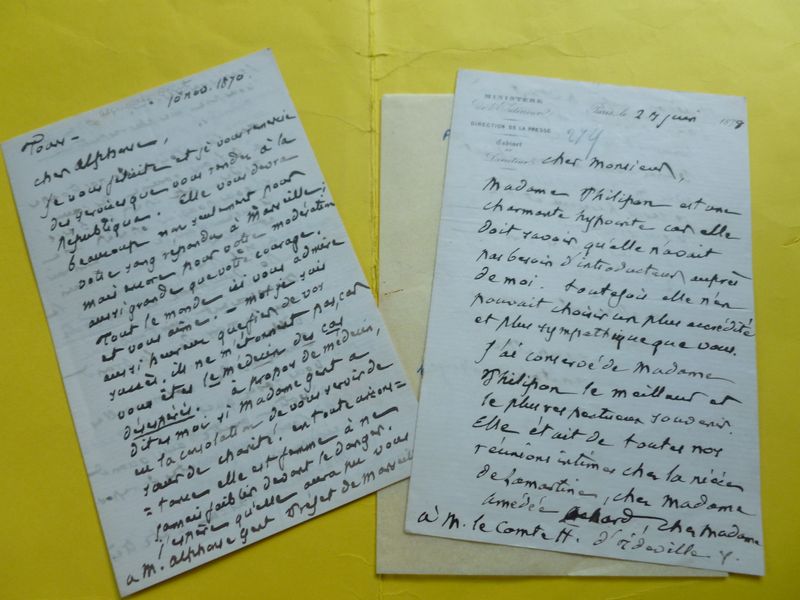 10 nov. 1870.
Tours -
cher alphonse,
je vous félicite et je vous remercie
des services que vous rendez à la
République. Elle vous devra
beaucoup non seulement pour
votre sang repandu à Marseille,
mais encore pour votre modération
aussi grande que votre courage.
Tout le monde ici vous admire
et vous aime. - moi je suis
aussi heureux que fier de vos
succès. ils ne m'étonnent pas, car
vous êtes le médecin des cas
désespérés. à propos de médecin,
dites moi si madame gent a
eu la consolation de vous servir de
sœur de charité. en toute circons=
=tance elle est femme à ne
jamais faiblir devant le danger.
j'espère qu'elle aura pu vous
à M. alphonse gent Préfet de Marseille
MINISTÈRE
de l'Intérieur
DIRECTION DE LA PRESSE
Cabinet
du
Directeur
Paris, le 27 juin 1878
274
cher monsieur,
Madame Philipon est une
charmante hypocrite car elle
doit savoir qu'elle n'avait
pas besoin d'introducteur auprès
de moi. toutefois elle n'en
pouvait choisir un plus accrédité
et plus sympathique que vous.
J'ai conservé de Madame
Philipon le meilleur et
le plus respectueux souvenir.
Elle était de toutes nos
réunions intimes chez la nièce
de Lamartine, chez madame
amédée achard, chez madame
à M. le Comte H. d'Ideville